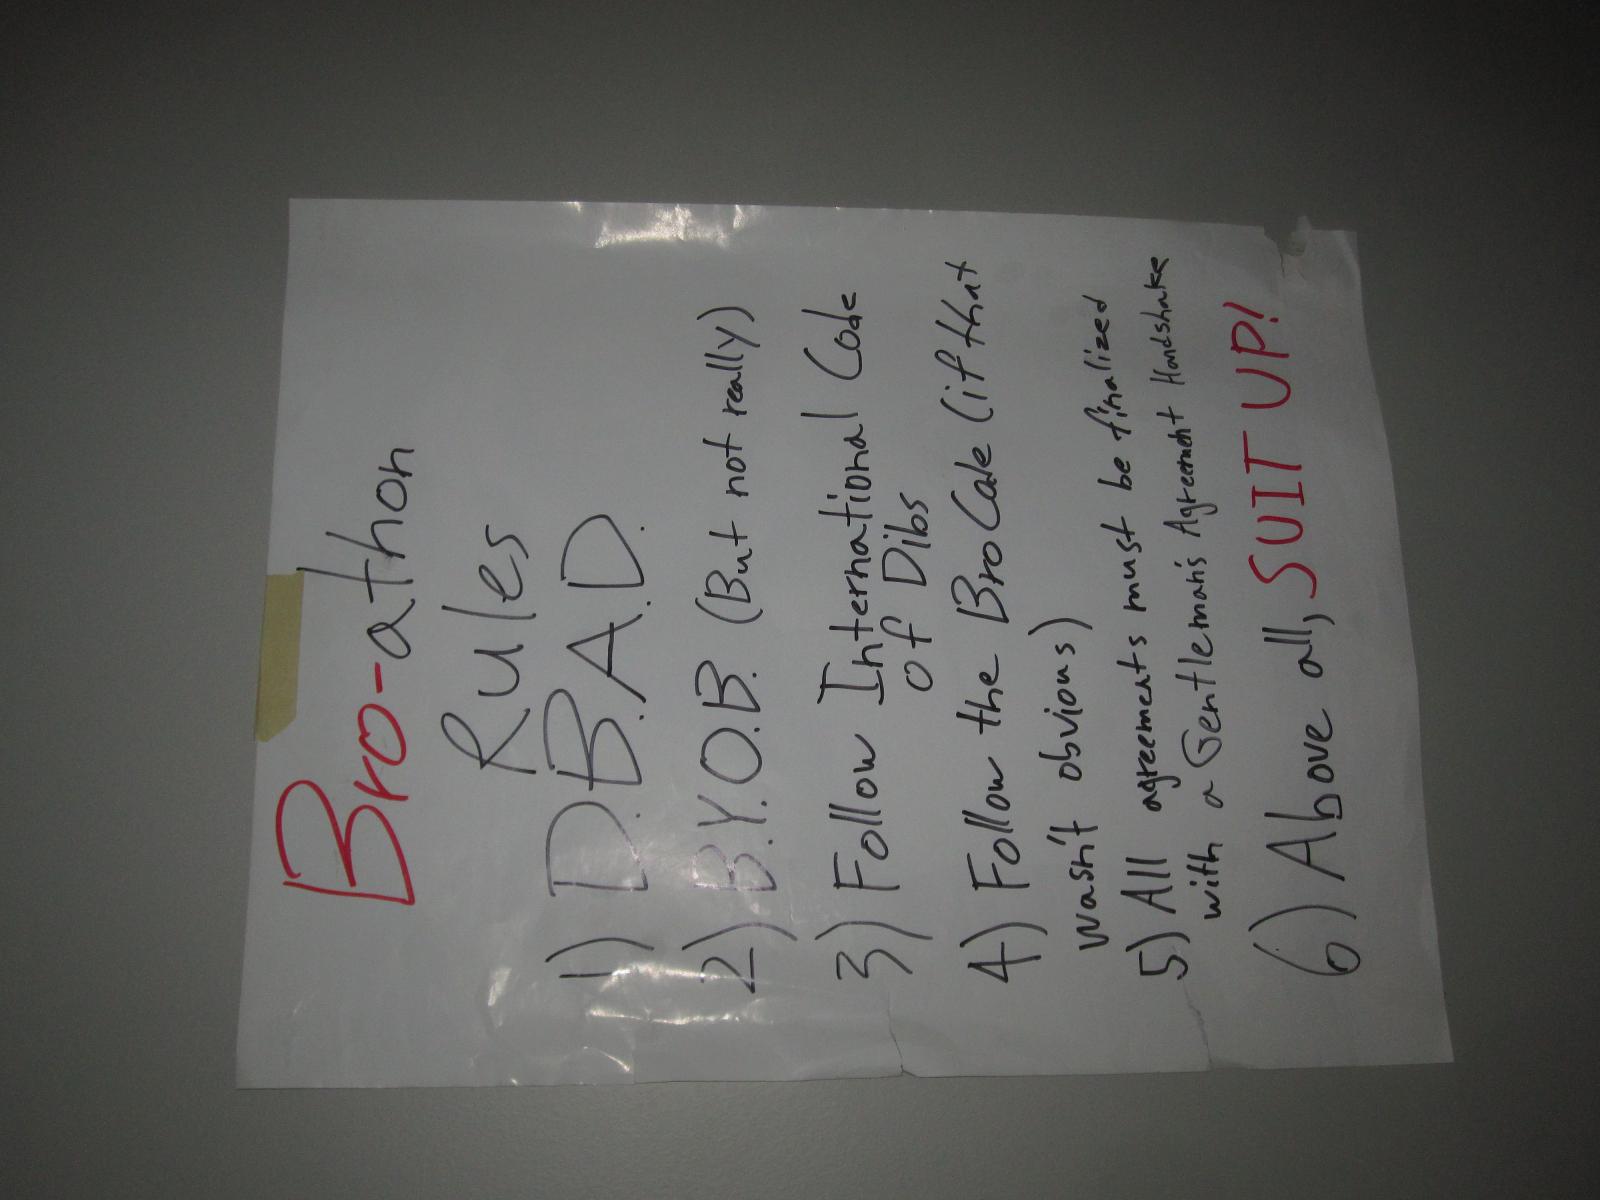 Bro-athon
Rules
1) D.B.A.D.
2) B.Y.O.B. (But not really)
3) Follow International Code
of Dibs
4) Follow the Bro Code (if that
wasn't obvious)
5) All agreements must be finalized
with a Gentleman's Agreement Handshake
6) Above all, SUIT UP!